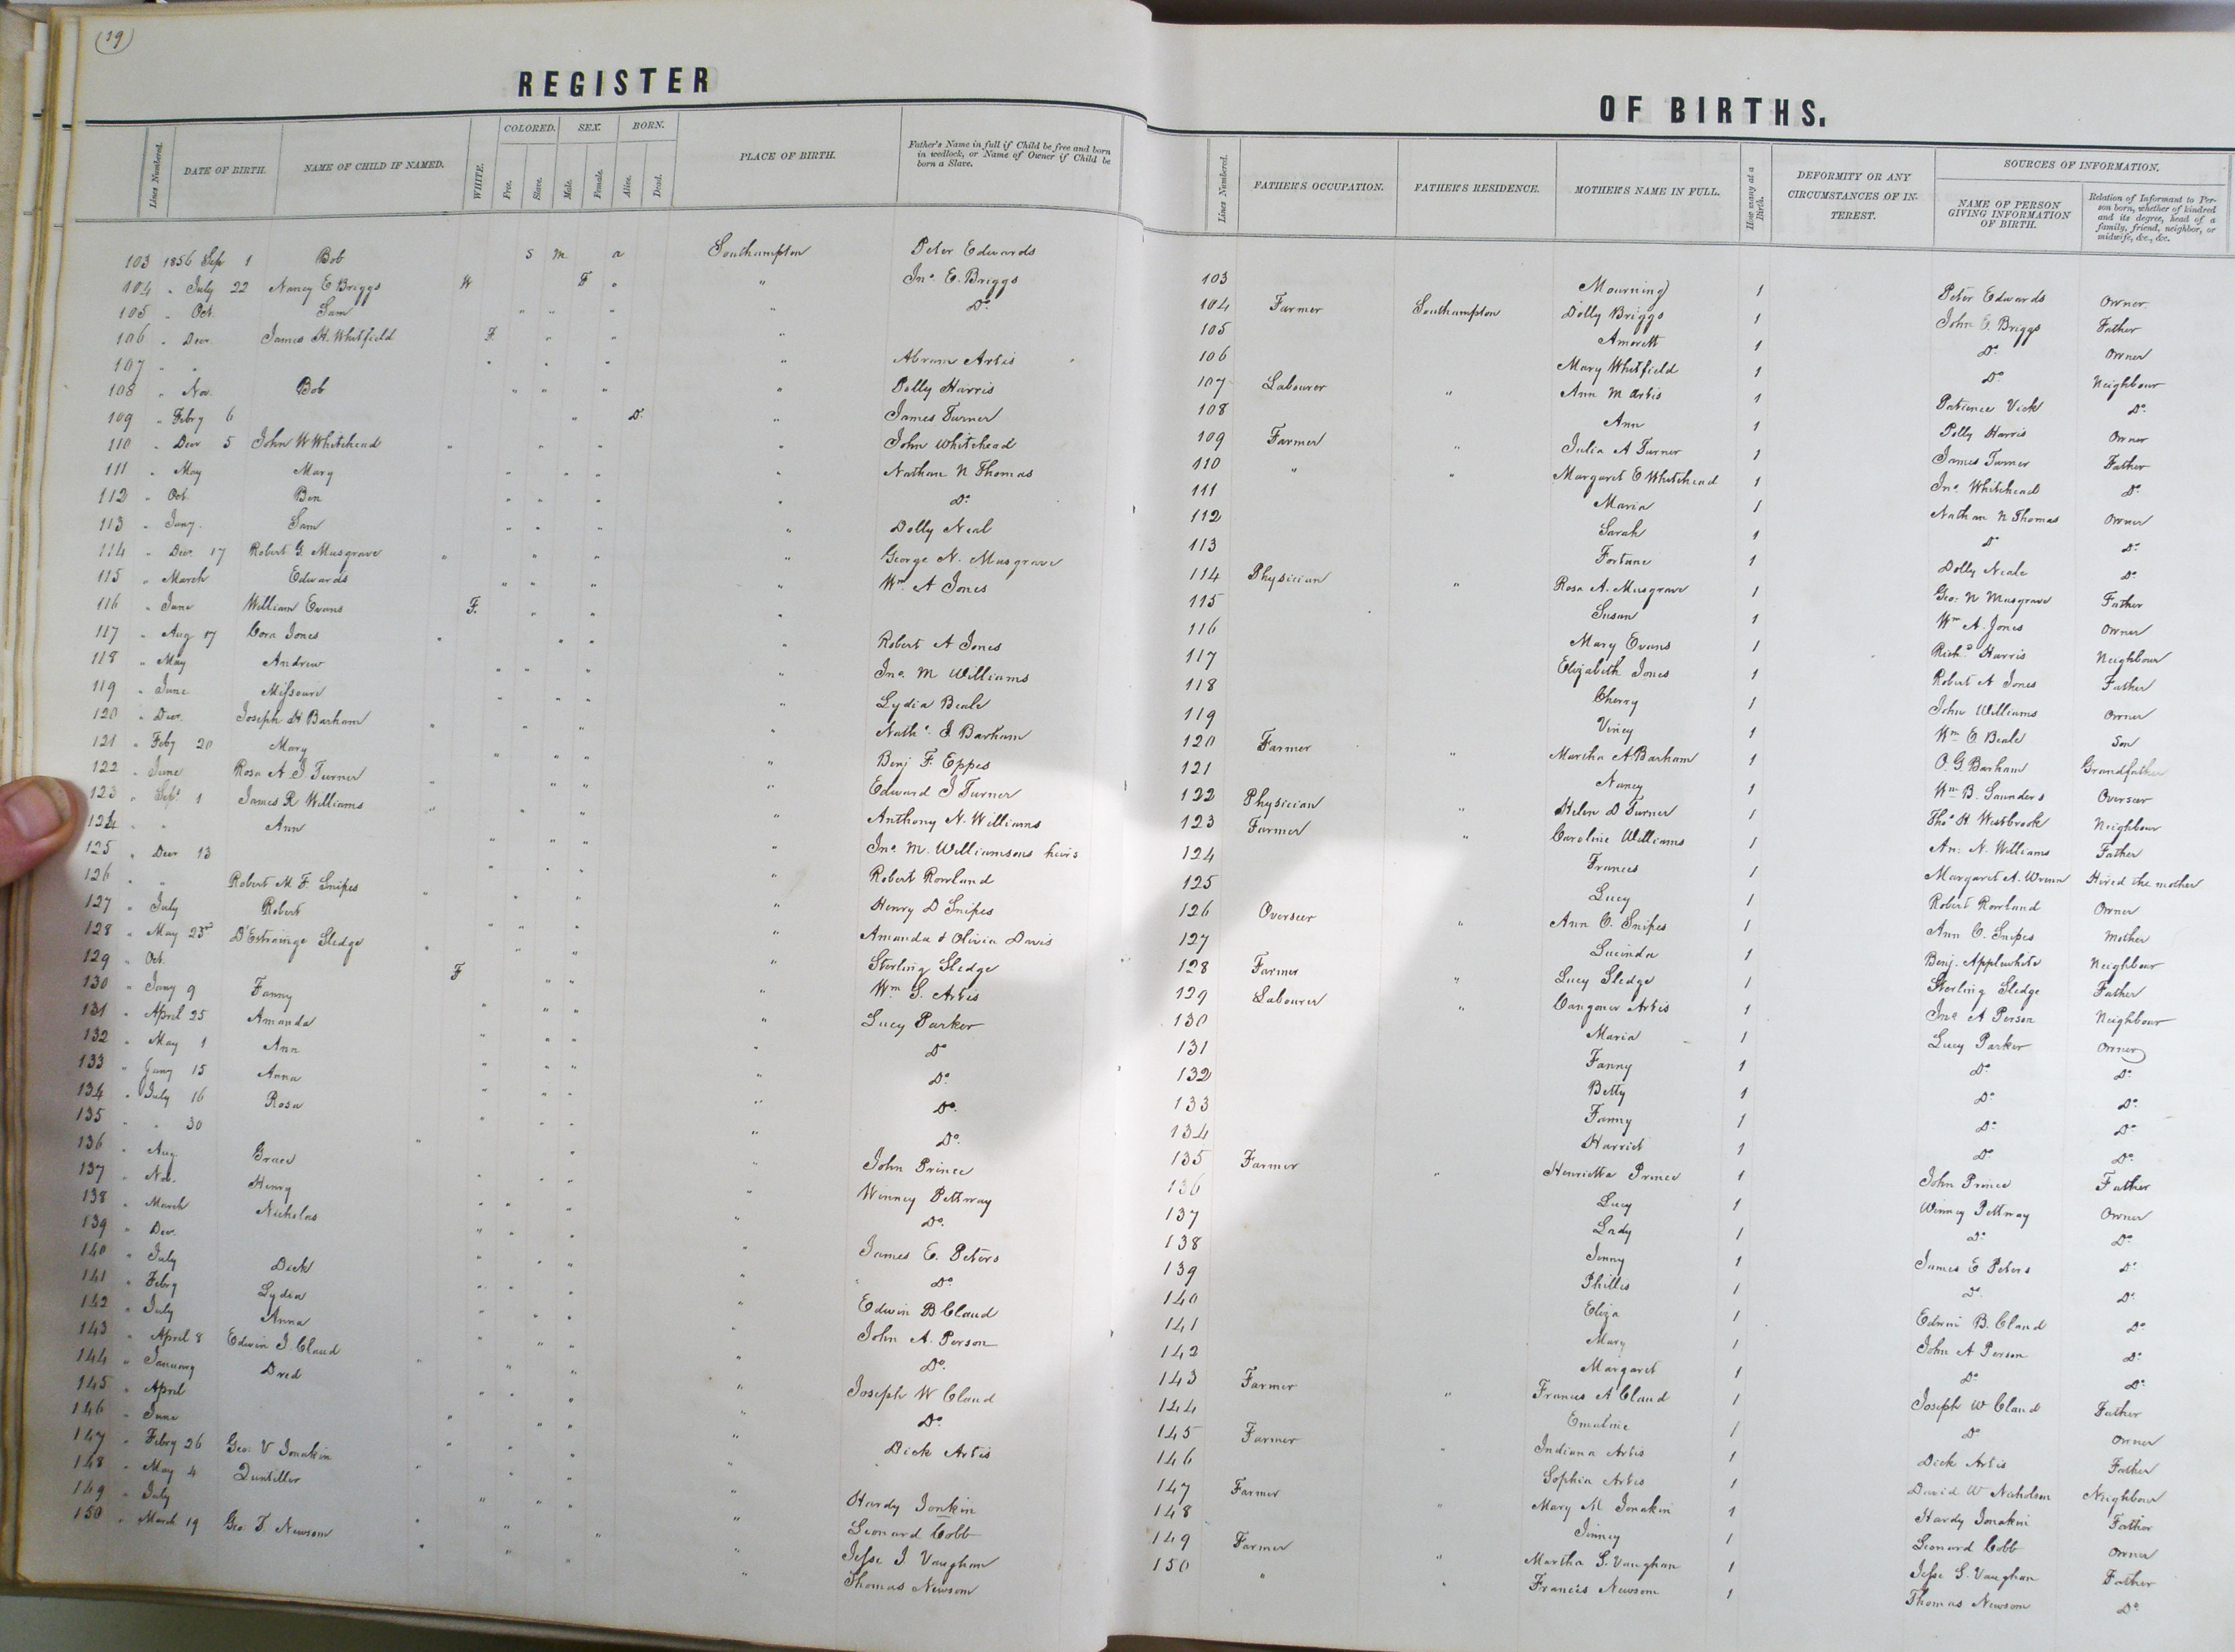 (19)
REGISTER
Lines Numbered. DATE OF BIRTH. NAME OF CHILD IF NAMED. WHITE. COLORED. Free. Slave. SEX. Male. Female. BORN. Alive. Dead. PLACE OF BIRTH. Father's Name in full if Child be free and born in wedlock, or Name of Owner if Child be born a Slave.
103 1856 Sep 1 Bob S m a Southampton Peter Edwards
104 " July 22 Nancy E Briggs W F " " Jno. E. Briggs
105 " Oct. Sam " " " " Do.
106 " Decr. James H. Whitfield F. " " "
107 " " " " " " Abram Artis
108 " Nov. Bob " " " " Polly Harris
109 " Febry 6 " D. " James Turner
110 " Decr 5 John W Whitehead " " " " John Whitehead
111 " May Mary " " " " Nathan N Thomas
112 " Oct. Ben " " " " Do.
113 " Jany. Sam " " " " Dolly Neal
114 " Decr 17 Robert G. Musgrave " " " " George N. Musgrave
115 " March Edwards " " " " Wm A Jones
116 " June William Evans F. " " "
117 " Aug 17 Cora Jones " " " " Robert A Jones
118 " May Andrew " " " " Jno. M Williams
119 " June Missouri " " " " Lydia Beale
120 " Decr. Joseph H Barham " " " " Nathl. J Barham
121 " Feby 20 Mary " " " " Benj F. Eppes
122 " June Rosa A. J. Turner " " " " Edward J Turner
123 " Sept 1 James R Williams " " " " Anthony N. Williams
124 " " Ann " " " " Jno. M. Williamsons heirs
125 " Decr 13 " " " " Robert Rowland
126 " " Robert M. F. Snipes " " " " Henry D Snipes
127 " July Robert " " " " Amanda & Olivia Davis
128 " May 23rd D'Estrainge Sledge " " " " Sterling Sledge
129 " Oct. F " " " Wm S. Artis
130 " Jany 9 Fanny " " " " Lucy Parker
131 " April 25 Amanda " " " " Do
132 " May 1 Ann " " " " Do.
133 " Jany 15 Anna " " " " Do.
134 " July 16 Rosa " " " " Do.
135 " " 30 " " " John Prince
136 " Aug. Grace " " " " Winney Pettway
137 " Nov. Henry " " " " Do.
138 " March Nicholas " " " " James E. Peters
139 " Dec. " " " " Do.
140 " July Dick " " " " Edwin B Claud
141 " Febry Lydia " " " " John A. Person
142 " July Anna " " " " Do.
143 " April 8 Edwin J. Claud " " " " Joseph W Claud
144 " January Dred " " " " Do.
145 " April " " " " Dick Artis
146 " June " " " "
147 " Febry 26 Geo: V Jonakin " " " " Hardy Jonkin
148 " May 4 " " " " Leonard Cobb
149 " July " " " " Jesse J. Vaughan
150 " March 19 Geo. T. Newsom " " " " Thomas Newsom
OF BIRTHS.
Lines Numbered. FATHER'S OCCUPATION. FATHER'S RESIDENCE. MOTHER'S NAME IN FULL. How many at a Birth. DEFORMITY OR ANY CIRCUMSTANCES OF INTEREST. SOURCES OF INFORMATION. NAME OF PERSON GIVING INFORMATION OF BIRTH. Relation of Informant to Person born, whether of kindred and its degree, head of a family, friend, neighbor, or midwife, &c., &c.
103 Mourning 1 Peter Edwards Owner
104 Farmer Southampton Dolly Briggs 1 John E. Briggs Father
105 Amorett 1 Do. Owner
106 Mary Whitfield 1 Do. Neighbour
107 Labourer " Ann M Artis 1 Patience Vick Do.
108 Ann 1 Polly Harris Owner
109 Farmer " Julia A Turner 1 James Turner Father
110 " " Margaret E Whitehead 1 Jno. Whitehead Do.
111 Maria 1 Nathan N Thomas Owner
112 Sarah 1 Do Do.
113 Fortune 1 Dolly Neale Do.
114 Physician " Rosa A. Musgrave 1 Geo: N Musgrave Father
115 Susan 1 Wm A. Jones Owner
116 Mary Evans 1 Richd. Harris Neighbour
117 Elizabeth Jones 1 Robert A Jones Father
118 Cherry 1 John Williams Owner
119 Viney 1 Wm E Beale Son
120 Farmer " Martha A Barham 1 O. G. Barham Grandfather
121 Nancy 1 Wm B. Saunders Overseer
122 Physician " Helen D Turner 1 Thos H. Westbrook Neighbour
123 Farmer " Caroline Williams 1 An: N. Williams Father
124 Frances 1 Margaret A. Wrenn Hired the mother
125 Lucy 1 Robert Rowland Owner
126 Overseer " Ann C. Snipes 1 Ann C. Snipes Mother
127 Lucinda 1 Benj. Applewhite Neighbour
128 Farmer " Lucy Sledge 1 Sterling Sledge Father
129 Labourer " Artis 1 Jno A Person Neighbour
130 Maria 1 Lucy Parker Owner
131 Fanny 1 Do. Do.
132 Betty 1 Do. Do.
133 Fanny 1 Do. Do.
134 Harriet 1 Do. Do.
135 Farmer " Henrietta Prince 1 John Prince Father
136 Lucy 1 Winney Pettway Owner
137 Lady 1 Do. Do.
138 Jenny 1 James E Peters Do.
139 Phillis 1 Do. Do.
140 Eliza 1 Edwin B. Claud Do.
141 Mary 1 John A Person Do.
142 Margaret 1 Do. Do.
143 Farmer " Frances A Claud 1 Joseph W Claud Father
144 Emaline 1 Do Owner
145 Farmer " Indiana Artis 1 Dick Artis Father
146 Sophia Artis 1 David W Nicholson Neighbour
147 Farmer " Mary M Jonakin 1 Hardy Jonakin Father
148 Jinney 1 Leonard Cobb Owner
149 Farmer " Martha S. Vaughan 1 Jesse S. Vaughan Father
150 " " Francis Newsom 1 Thomas Newsom Do.